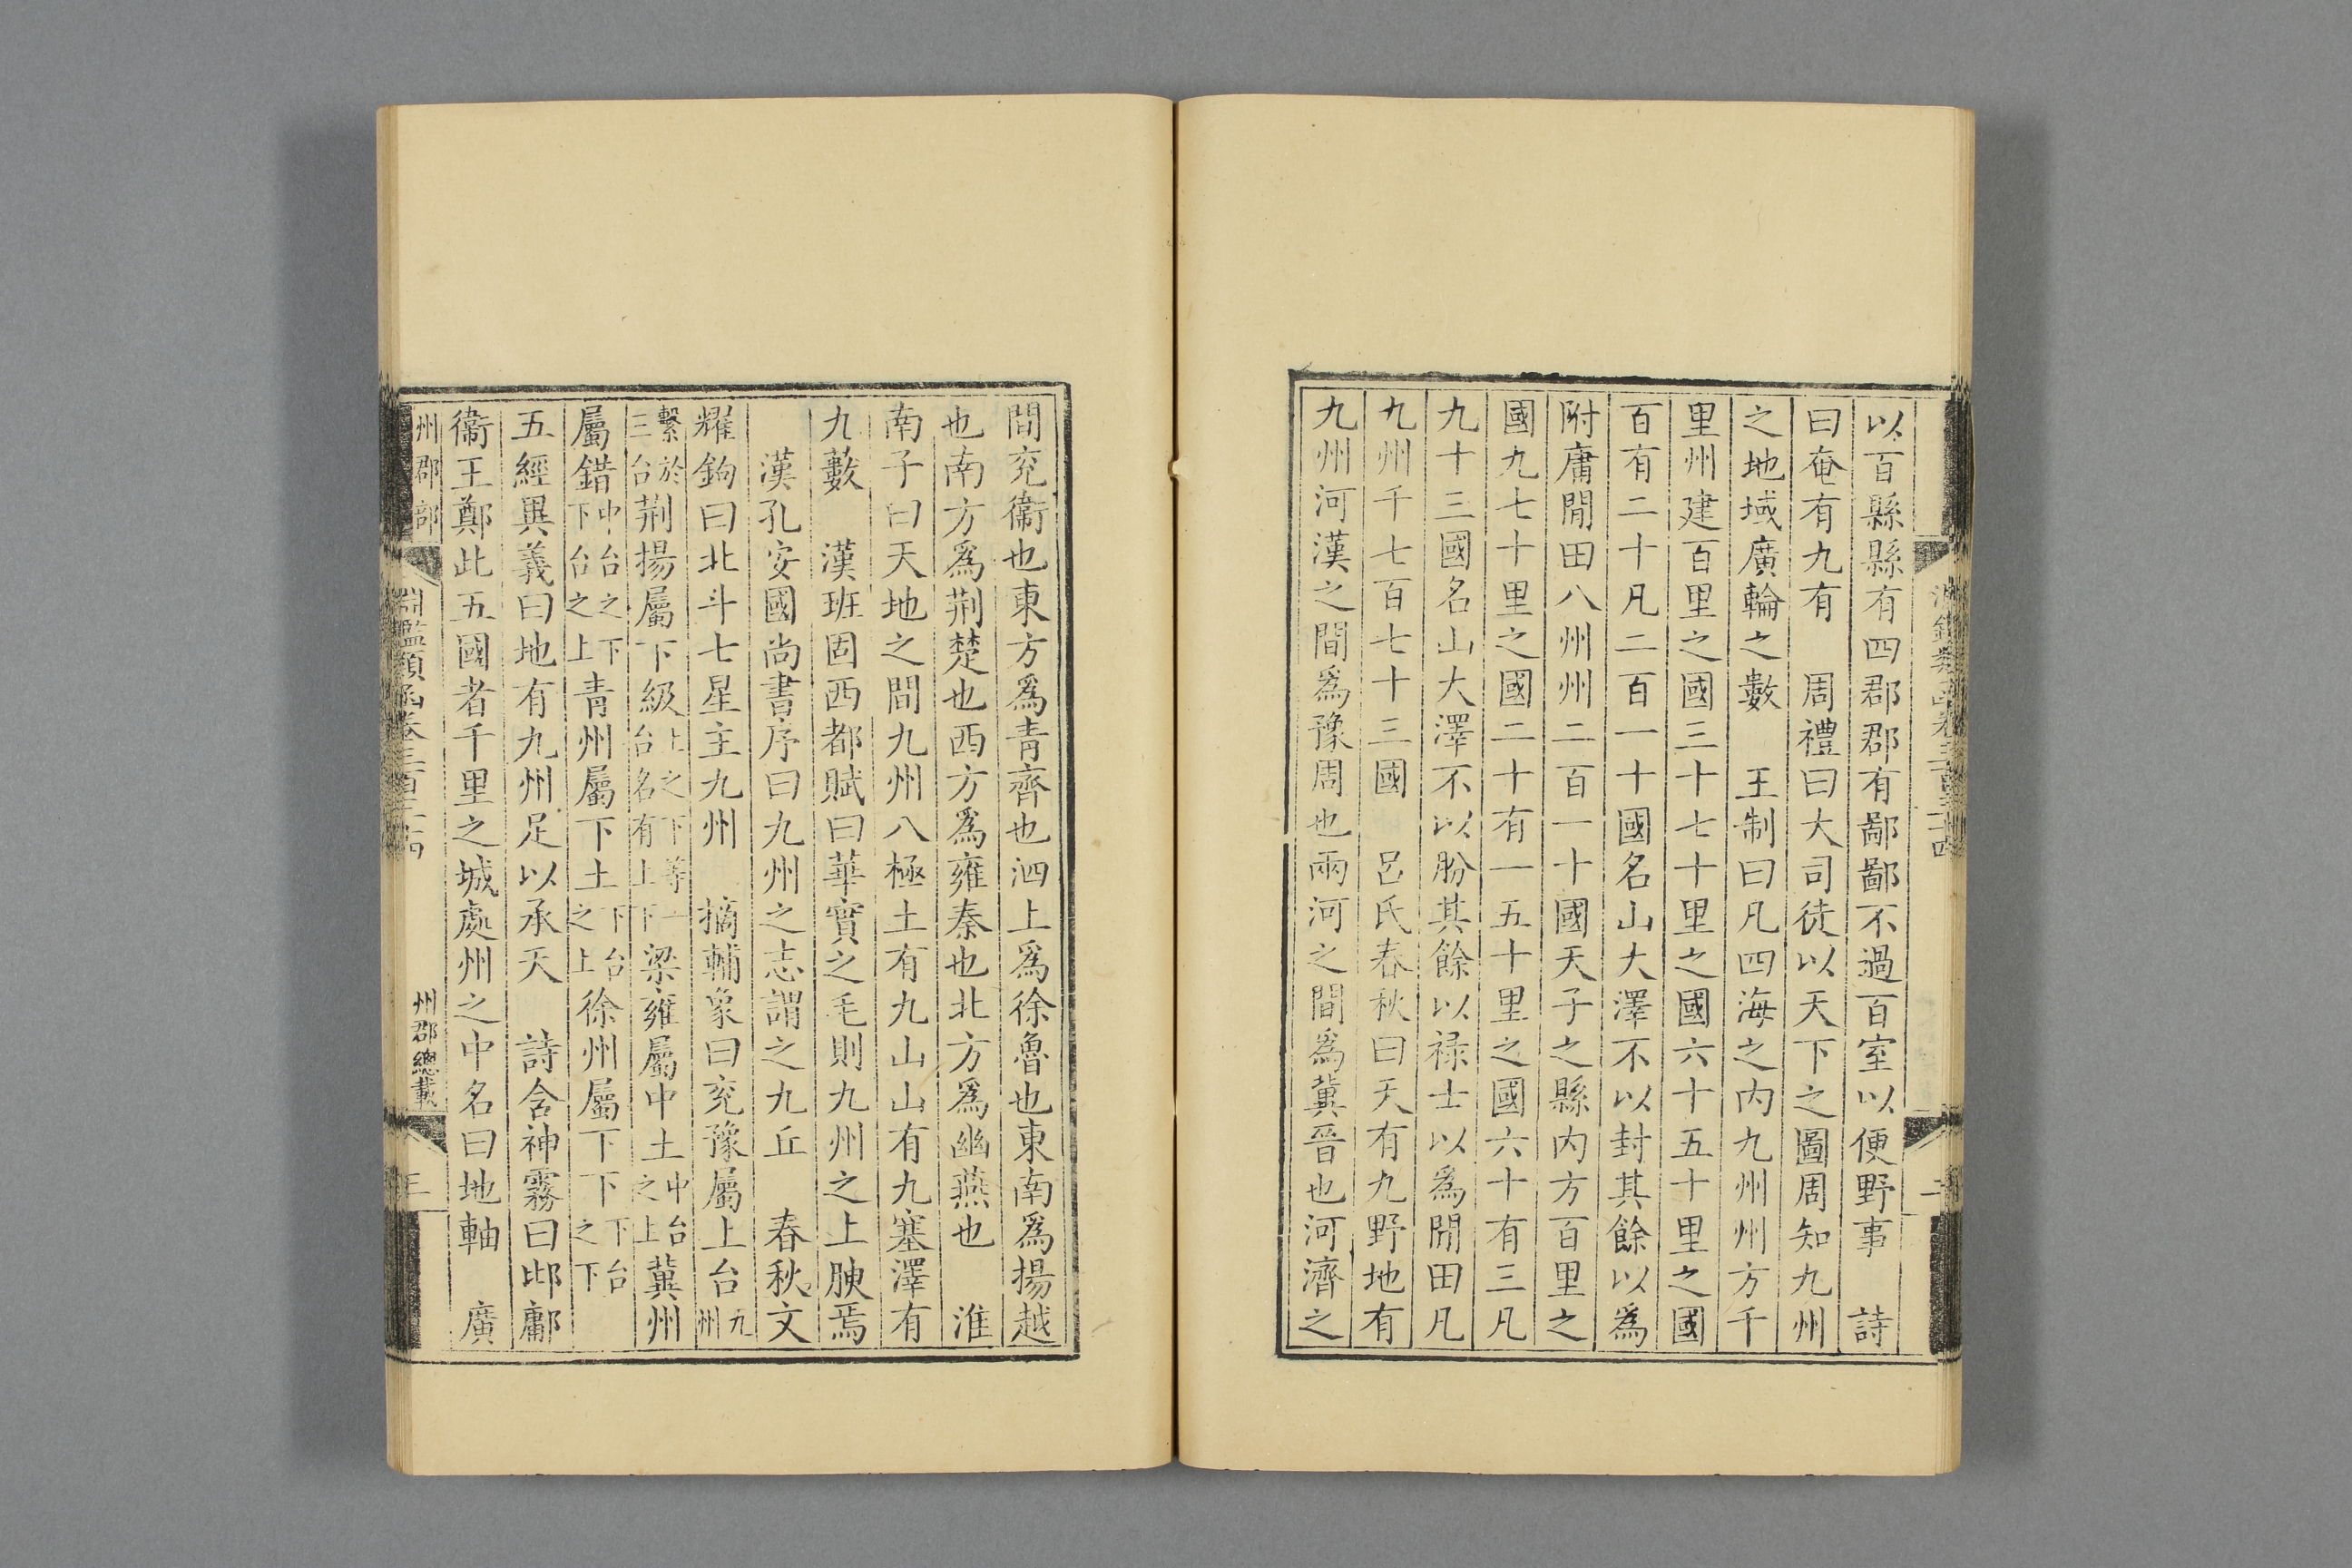 以百縣縣有四郡郡有鄙鄙不過百室以便野事　詩
曰奄有九有　周禮曰大司徒以天下之圖周知九州
之地域廣輪之數　王制曰凡四海之内九州州方千
里州建百里之國三十七十里之國六十五十里之國
百有二十凡二百一十國名山大澤不以封其餘以為
附庸閒田八州州二百一十國天子之縣内方百里之
國九七十里之國二十有一五十里之國六十有三凡
九十三國名山大澤不以朌其餘以祿士以為閒田凡
九州千七百七十三國　呂氏春秋曰天有九野地有
九州河漢之間為豫周也兩河之間為冀晉也河濟之
間兖衞也東方為青齊也泗上為徐魯也東南為揚越
也南方為荆楚也西方為雍秦也北方為幽燕也　淮
南子曰天地之間九州八極土有九山山有九塞澤有
九藪　漢班固西都賦曰華實之毛則九州之上腴焉
漢孔安國尚書序曰九州之志謂之九丘　春秋文
耀鉤曰北斗七星主九州　摘輔象曰兖豫屬上台九州
繫於三台荆揚屬下級上之下等一台名有上下梁雍屬中土中台之上冀州
屬錯中台之下下台之上青州屬下土下台之上徐州屬下下下台之下
五經異義曰地有九州足以承天　詩含神霧曰邶鄘
衞王鄭此五國者千里之城處州之中名曰地軸　廣
州郡部
淵鑑類函卷三百三十四
州郡總載
三